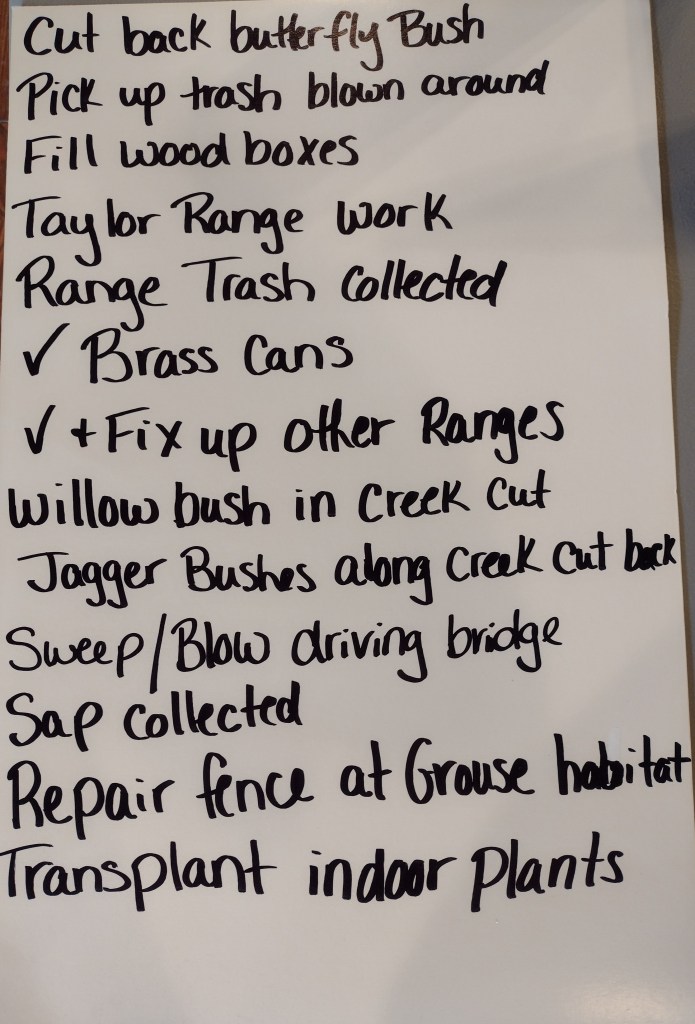 Cut back butterfly Bush
Pick up trash blown around
Fill wood boxes
Taylor Range work
Range Trash collected
✓ Brass cans
✓ + Fix up other Ranges
Willow bush in creek cut
Jagger Bushes along creek cut back
Sweep/Blow driving bridge
Sap collected
Repair fence at Grouse habitat
Transplant indoor plants